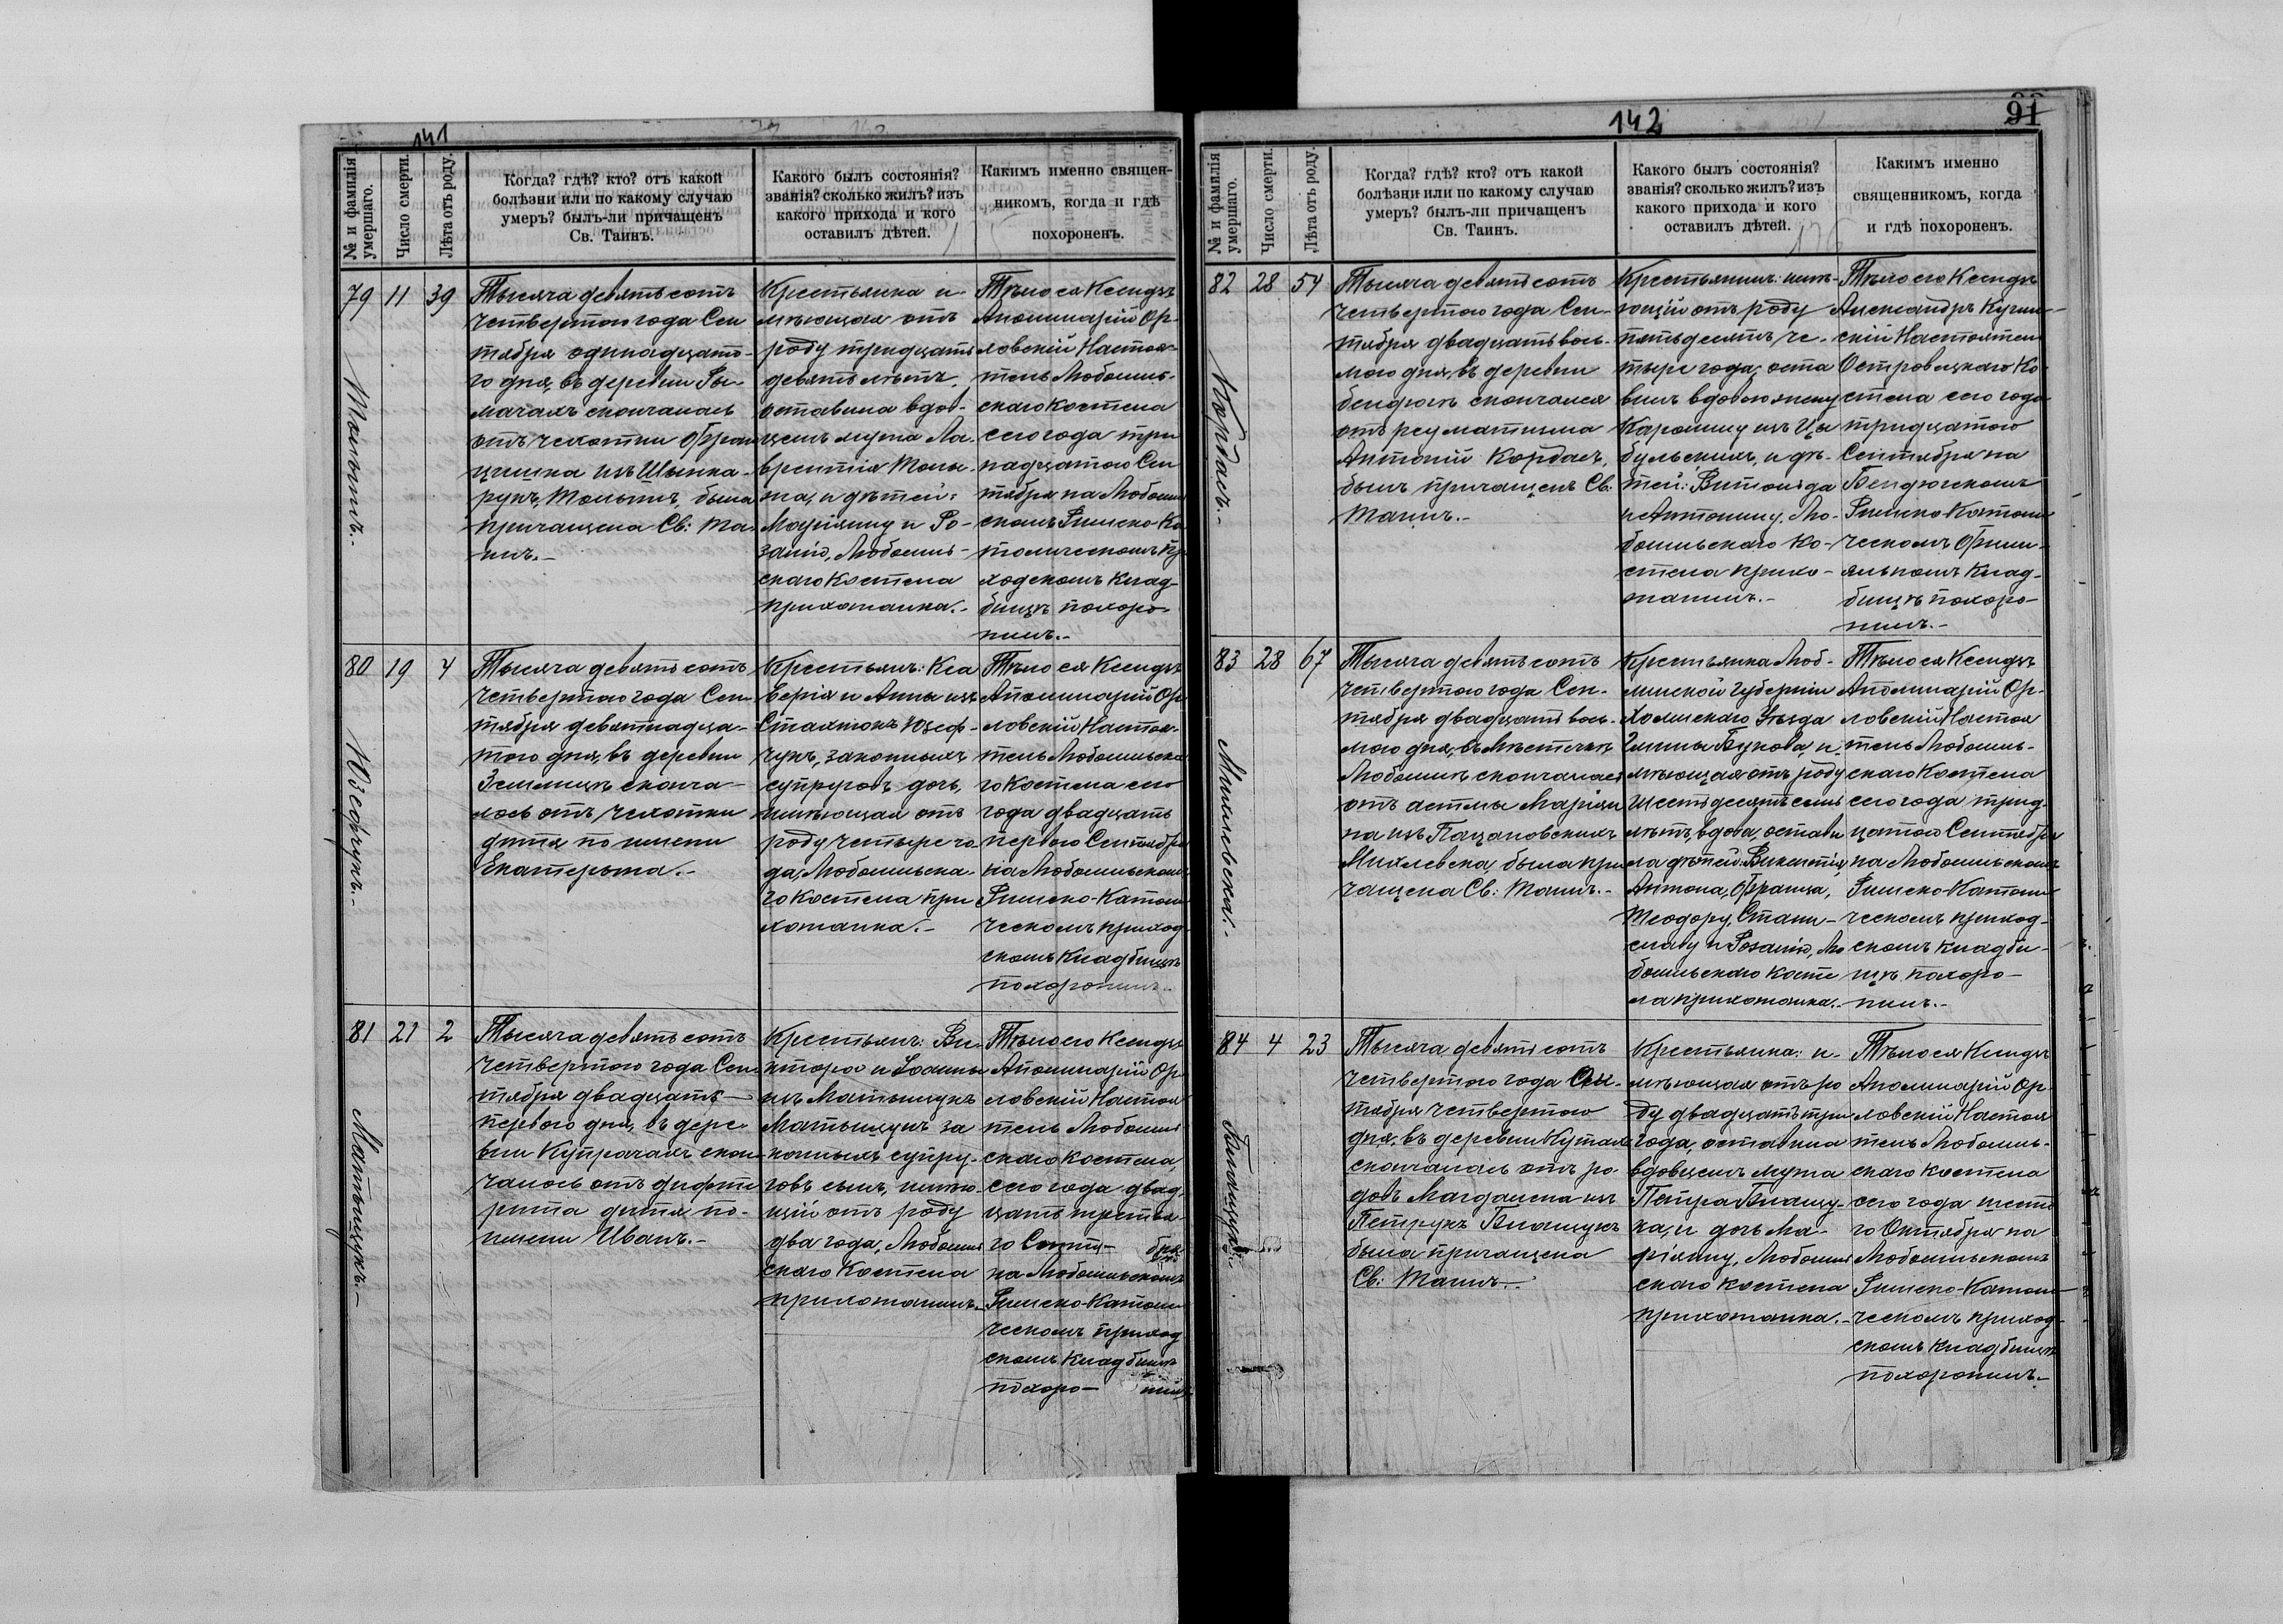 141
№ и фамилія умершаго.
Число смерти.
Лѣта отъ роду.
Когда? гдѣ? кто? отъ какой
болѣзни или по какому случаю
умеръ? былъ-ли причащенъ
Св. Таинъ.
Какого былъ состоянія?
званія? сколько жилъ? изъ
какого прихода и кого
оставилъ дѣтей.
Какимъ именно священ-
никомъ, когда и гдѣ
похороненъ.
79 11 39
Тысяча девятьсотъ
четвертого года Сен
тября одинадцато-
го дня, въ деревни
скончалась
отъ чехотки Фран
цишка изъ
была
причащена Св: Та-
инъ.-
Крестьянка и-
мѣющая отъ
роду тридцать
девять лѣтъ,
оставила вдов-
цемъ мужа Ла-
врентія
и дѣтей:
Маріянну и Ро-
залію, Любомль-
скаго Костела
прихожанка.-
Тѣло ея Ксендзъ
Аполинарій Ор-
ловскій Настоя-
тель Любомль-
скаго костела
сего года три
надцатого Сен
тября на Любомль
скомъ Римско-Ка
толическомъ при
ходскомъ клад-
бищѣ похоро-
нилъ.-
80 19 4
Юзефчукъ.-
Тысяча девятьсотъ
четвертого года Сен
тября девятнадца-
того дня, въ деревни
Землицѣ сконча-
лось отъ чехотки
дитя по имени
Екатерына.-
Крестьянъ: Кса
верія и Анны изъ
Юзеф-
чукъ, законныхъ
супруговъ дочь,
имѣющая отъ
роду четыре го
да, Любомльска-
го костела при
хожанка.-
Тѣло ея Ксендзъ
Аполинарій Ор
ловскій Настоя-
тель Любомльска
го костела сего
года двадцать
первого Сентября
на Любомльскомъ
Римско-Католи
ческомъ приход
скомъ кладбищѣ
похоронилъ.-
81 21 2
Матыщукъ.-
Тысяча девятьсотъ
четвертого года Сен
тября двадцать-
первого дня, въ дере
вни Купрачахъ скон
чалось отъ дифте
рита дитя по-
имени Иванъ.-
Крестьянъ: Ви-
ктора и Іоанны
изъ Матыщукъ
Матыщукъ за
конныхъ супру-
говъ сынъ, имѣю-
щій отъ роду
два года, Любомль
скаго Костела
прихожанинъ.-
Тѣло его Ксендзъ
Аполинарій Ор
ловскій Настоя
тель Любомль
скаго костела
сего года двад-
цать третья-
го Сентя- бря
на Любомльскомъ
Римско-Католи
ческомъ приход
скомъ кладбищѣ
похоро- нилъ
142
91
№ и фамилія умершаго.
Число смерти.
Лѣта отъ роду.
Когда? гдѣ? кто? отъ какой
болѣзни или по какому случаю
умеръ? былъ-ли причащенъ
Св. Таинъ.
Какого былъ состоянія?
званія? сколько жилъ? изъ
какого прихода и кого
оставилъ дѣтей.
Какимъ именно
священникомъ, когда
и гдѣ похороненъ.
82 28 54
Кордасъ.-
Тысяча девятьсотъ
четвертого года Сен-
тября двадцать вось-
мого дня, въ деревни
Бендюгѣ скончался
отъ реуматизма
Антоній Кордасъ,
былъ причащенъ Св:
Таинъ.-
Крестьянинъ: имѣ-
ющій отъ роду
пятьдесятъ че-
тыре года, оста
вилъ вдовою жену
Каролину изъ Цы
бульскихъ, и дѣ-
тей: Витольда
и Антонину, Лю-
бомльскаго Ко-
стела прихо-
жанинъ.-
Тѣло его Ксендзъ
Александръ
скій Настоятель
Островецкаго Ко
стела сего года
тридцатого
Сентября на
Бендюгскомъ
Римско-Католи
ческомъ
клад-
бищѣ похоро-
нилъ.-
83 28 67
Михлевска.-
Тысяча девятьсотъ
четвертого года Сен-
тября двадцать вось-
мого дня, въ Мѣстечкѣ
Любомлѣ скончалась
отъ астмы Маріян
на изъ Пацановскихъ
Михлевска, была при
чащена Св: Таинъ.-
Крестьянка Люб-
линской Губерніи
Холмскаго Уѣзда
Гмины Букова, и-
мѣющая отъ роду
шестьдесятъ семь
лѣтъ, вдова, остави
ла дѣтей: Викентія,
Антона, Франца,
Теодору, Стани-
славу и Розалію, Лю
бомльскаго косте
ла прихожанка.-
Тѣло ея Ксендзъ
Аполинарій Ор-
ловскій Настоя
тель Любомль-
скаго костела
сего года трид-
цатого Сентября
на Любомльскомъ
Римско-Католи
ческомъ приход-
скомъ кладби-
щѣ похоро-
нилъ.-
84 4 23
Тысяча девятьсотъ
четвертого года Ок-
тября четвертого
дня, въ деревни
скончалась отъ ро-
довъ Магдалена изъ
Петрукъ
была причащена
Св: Таинъ.-
Крестьянка: и-
мѣющая отъ ро
ду двадцать три
года, оставила
вдовцемъ мужа
Петра
и дочь Ма-
ріянну, Любомль
скаго костела
прихожанка.-
Тѣло ея Ксендзъ
Аполинарій Ор
ловскій Настоя
тель Любомль-
скаго костела
сего года шесто
го Октября на
Любомльскомъ
Римско-Католи-
ческомъ приход-
скомъ кладбищѣ
похоронилъ.-